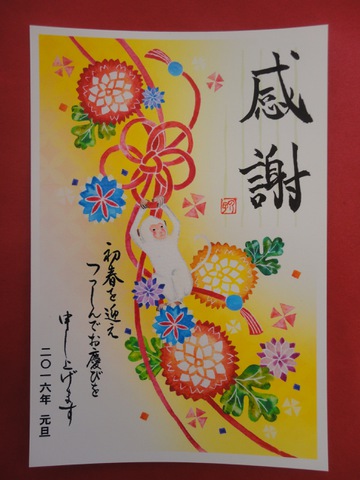 感謝
初春を迎え
つつしんでお慶びを
申し上げます
二〇一六年 元旦